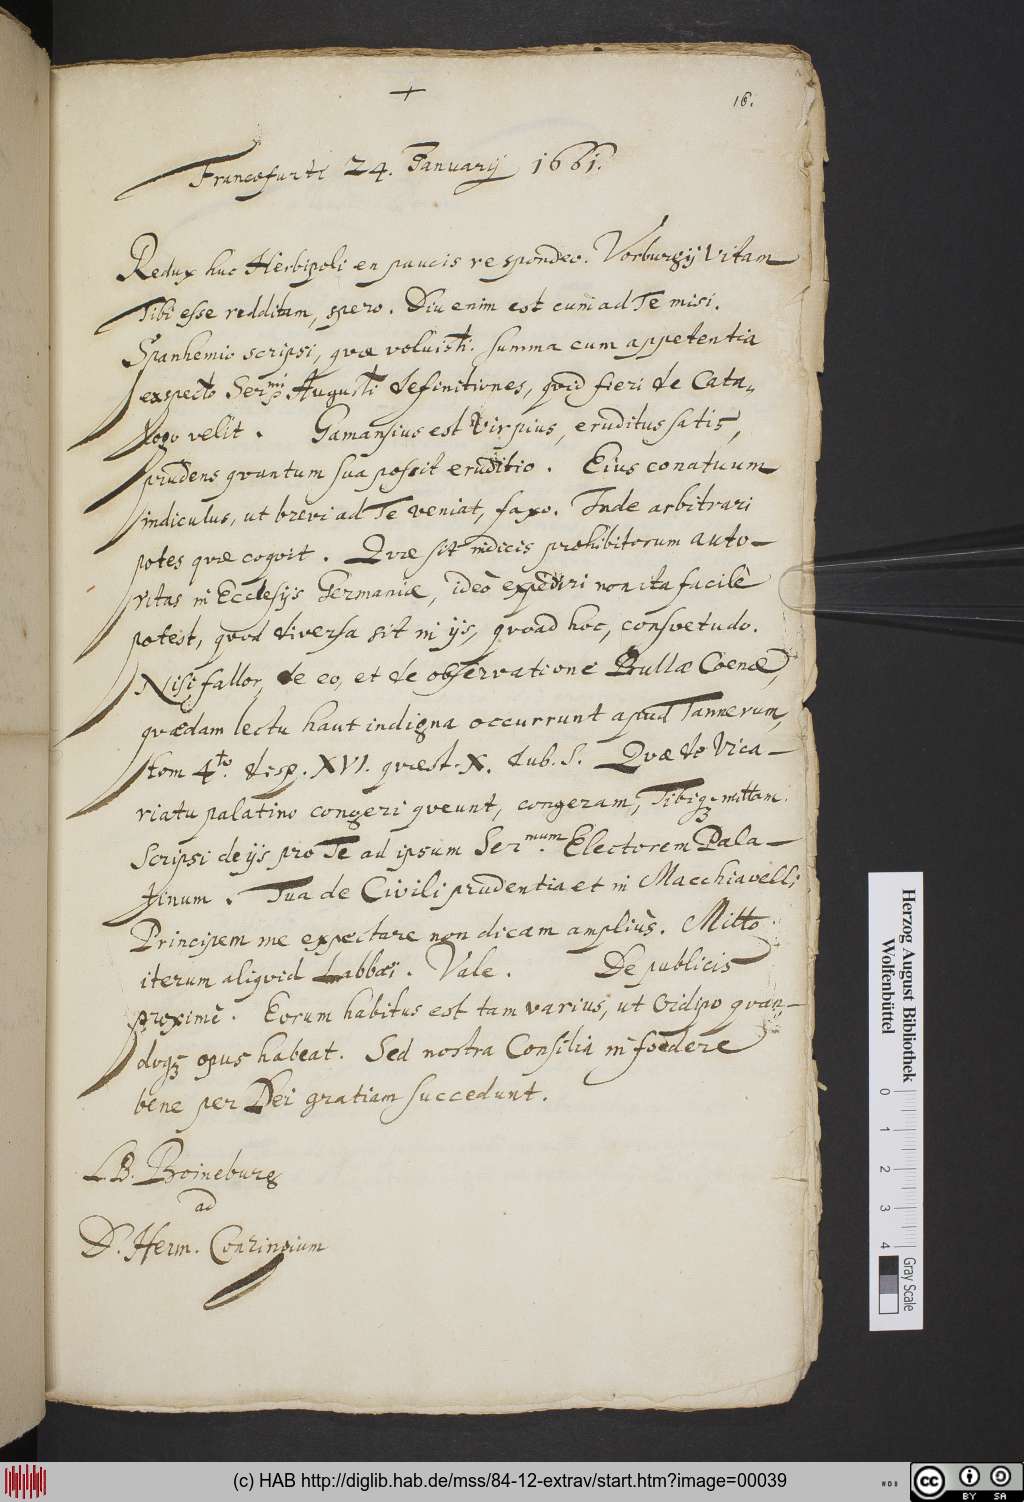 +
16.
Francofurti 24. Januarij 1661.
Redux huc Herbipoli en paucis respondeo. Vorburgij vitam
Tibi esse redditam, spero. Diu enim est cum ad Te misi.
Spanhemio scripsi, quæ voluisti. summa cum appetentia
expecto Ser.mi Augusti definitiones, quid fieri de Cata„
logo velit. Gamansius est Vir pius, eruditus satis,
prudens quantum sua possit eruditio. Eius conatuum
indiculus, ut brevi ad Te veniat, faxo. Inde arbitrari
potes quæ coquit. Quæ sit indicis prohibitorum auto-
ritas in Ecclesijs Germaniæ, ideò expediri non ita facilè
potest, quod diversa sit in ijs, quoad hoc, consvetudo.
Nisi fallor, de eo, et de observatione Bullæ Coenæ,
quædam lectu haut indigna occurrunt apud Tannerum,
tom 4.to disp. XVI. quæst. X. dub. S. Quæ de Vica-
riatu palatino congeri queunt, congeram, Tibiq; mittam.
Scripsi de ijs pro Te ad ipsum Ser.mum Electorem Pala-
tinum. Tua de Civili prudentia et in Macchiavelli
Principem me expectare non dicam ampliùs. Mitto
iterum aliquid Labbæi. Vale. De publicis
proximè. Eorum habitus est tam varius, ut Oidipo quan-
doq; opus habeat. Sed nostra Consilia in foedere
bene per Dei gratiam succedunt.
L.B. Boineburg
ad
D. Herm. Conringium
Herzog August Bibliothek
Wolfenbüttel
0 1 2 3 4
Gray Scale
(c) HAB http://diglib.hab.de/mss/84-12-extrav/start.htm?image=00039
cc BY SA